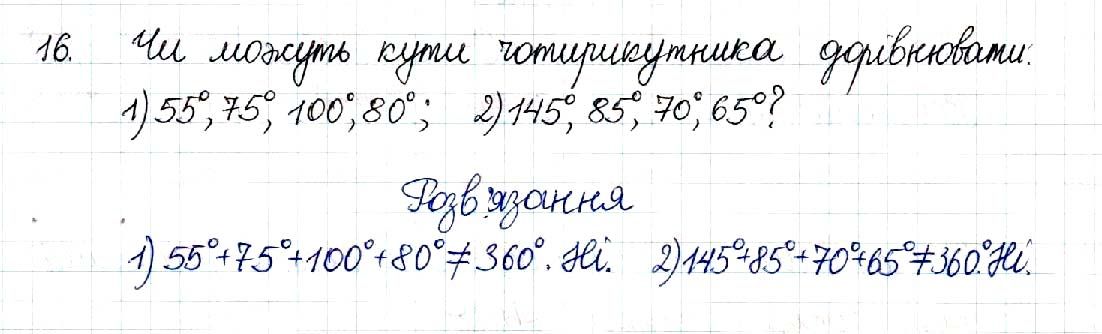 16. Чи можуть кути чотирикутника дорівнювати:
1) 55°, 75°, 100°, 80°; 2) 145°, 85°, 70°, 65°?
Розв'язання
1) 55°+75°+100°+80°≠360°. Ні. 2) 145°+85°+70°+65°≠360°. Ні.